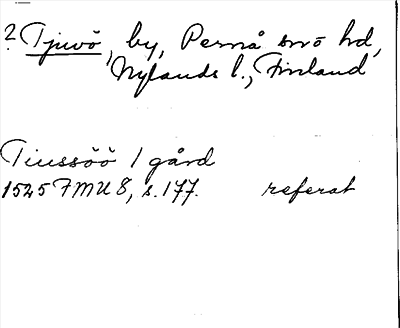 ? Tjuvö, by, Pernå snö hd,
Nylands l., Finland
Tiussöö 1 gård
1525 FMU 8, s. 177. referat